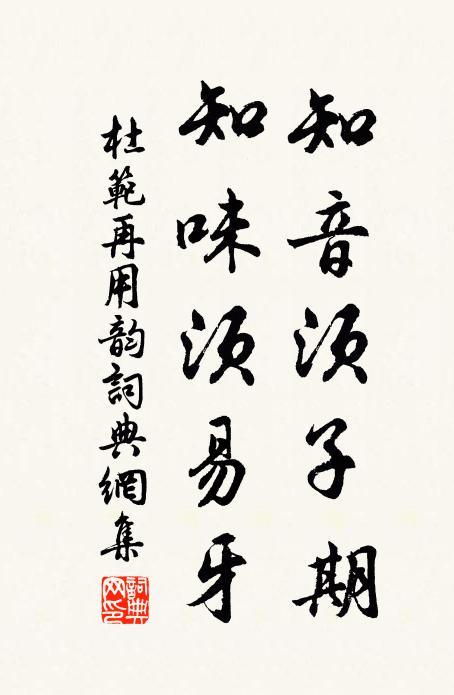 知音須子期
知味須易牙
杜範再用韵詞典網集
詞典网印